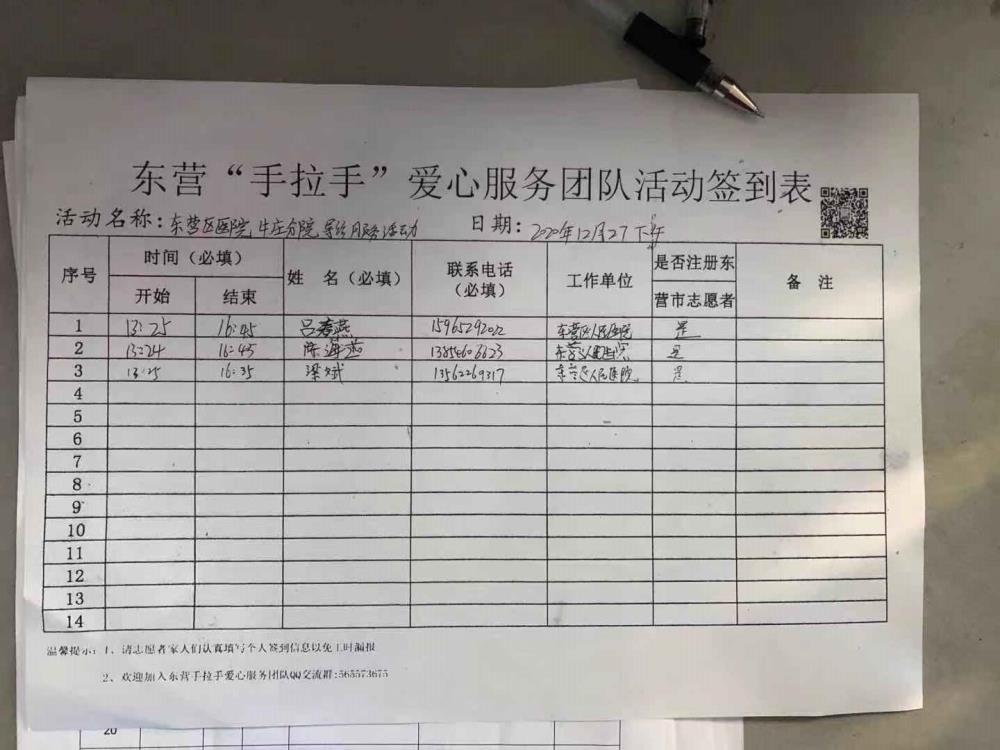 东营“手拉手”爱心服务团队活动签到表
活动名称：东营区医院牛庄分院导诊服务活动 日期：2020年12月27下午
序号 时间（必填） 姓 名（必填） 联系电话（必填） 工作单位 是否注册东营市志愿者 备 注
开始 结束
1 13:25 16:45 吕春燕 15965292022 东营区人民医院 是
2 13:24 16:45 陈海燕 13854606623 东营区人民医院 是
3 13:25 16:35 梁斌 13562269317 东营区人民医院 是
4
5
6
7
8
9
10
11
12
13
14
温馨提示：1、请志愿者家人们认真填写个人签到信息以免工时漏报
2、欢迎加入东营手拉手爱心服务团队QQ交流群:565573675
20